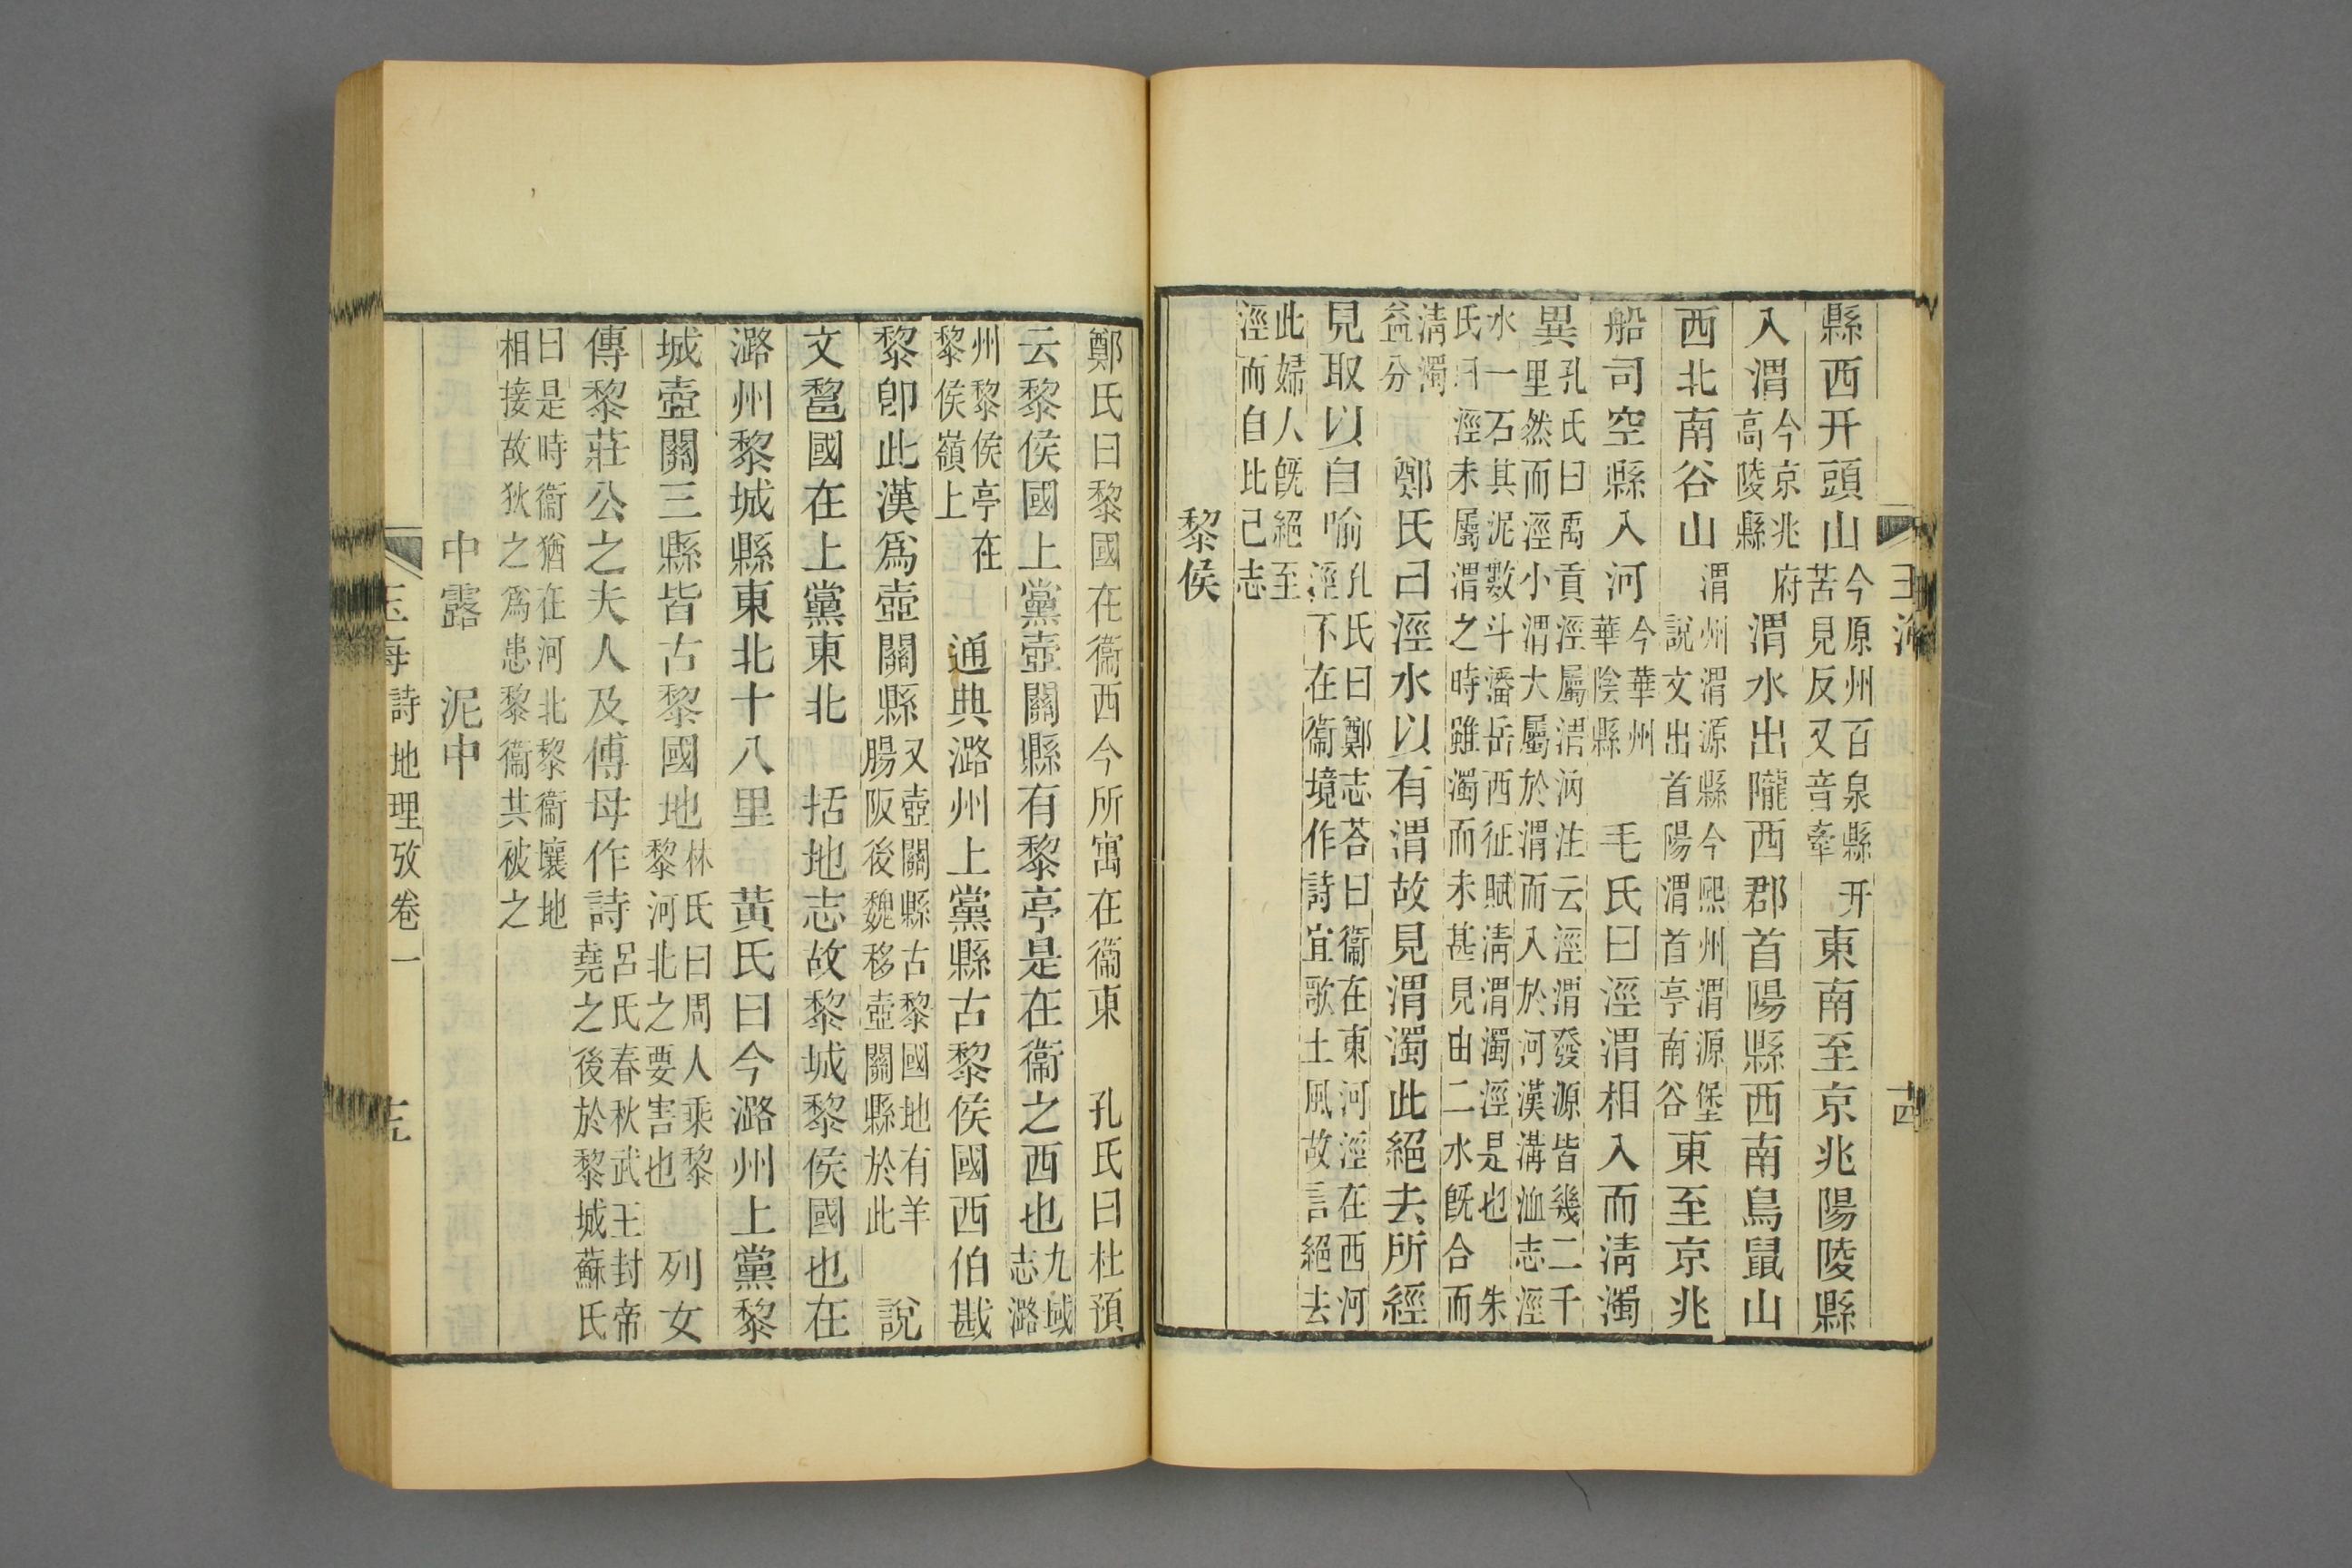 縣西幵頭山今原州百泉縣幵苦見反又音牽東南至京兆陽陵縣
入渭今京兆府高陵縣渭水出隴西郡首陽縣西南鳥鼠山
西北南谷山渭州渭源縣今熙州渭源堡說文出首陽渭首亭南谷東至京兆
船司空縣入河今華州華陰縣毛氏曰涇渭相入而淸濁
異孔氏曰禹貢涇屬渭汭注云涇渭發源皆幾二千里然而涇小渭大屬於渭而入於河漢溝洫志涇
水一石其泥數斗潘岳西征賦淸渭濁涇是也朱氏曰涇未屬渭之時雖濁而未甚見由二水旣合而
淸濁益分鄭氏曰涇水以有渭故見渭濁此絕去所經
見取以自喻孔氏曰鄭志荅曰衞在東河涇在西河涇不在衞境作詩宜歌土風故言絕去
此婦人旣絕至涇而自比己志
黎侯
鄭氏曰黎國在衞西今所寓在衞東 孔氏曰杜預
云黎侯國上黨壺關縣有黎亭是在衞之西也九域志潞
州黎侯亭在黎侯嶺上通典潞州上黨縣古黎侯國西伯戡
黎卽此漢爲壺關縣又壺關縣古黎國地有羊腸阪後魏移壺關縣於此說
文𨛫國在上黨東北 括地志故黎城黎侯國也在
潞州黎城縣東北十八里 黃氏曰今潞州上黨黎
城壺關三縣皆古黎國地林氏曰周人乘黎黎河北之要害也列女
傳黎莊公之夫人及傅母作詩呂氏春秋武王封帝堯之後於黎城蘇氏
曰是時衞猶在河北黎衞壤地相接故狄之爲患黎衞共被之
中露 泥中
玉海 詩地理攷卷一